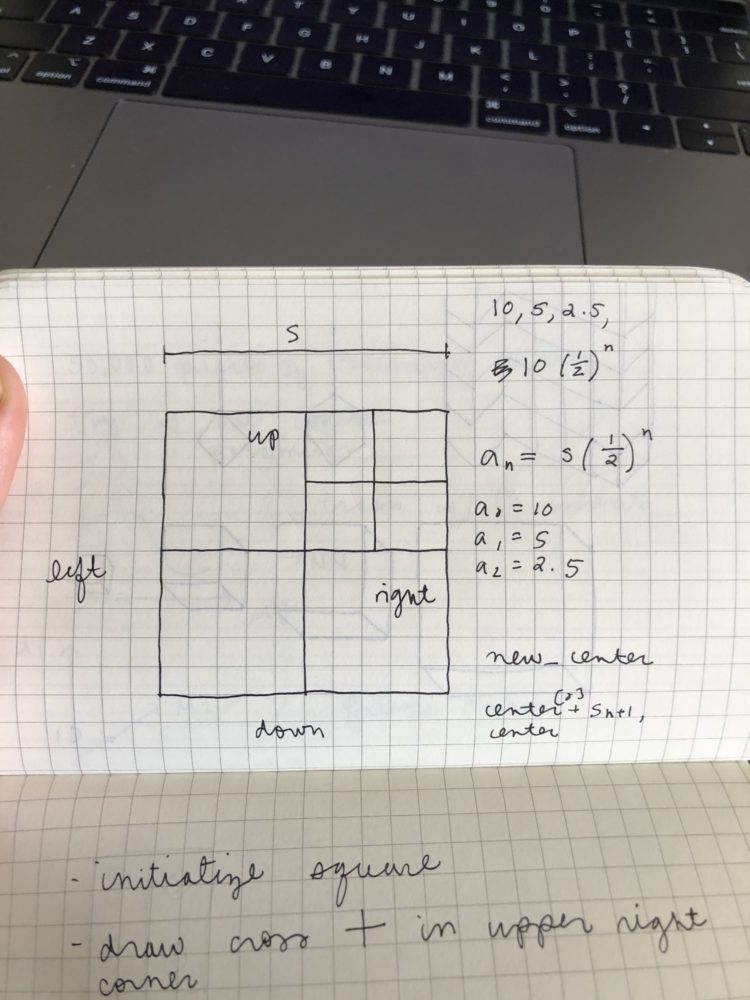 A S D F G H J K L
Z X C V B N M < , > . ? /
option command command option
S
10, 5, 2.5,
10 (1/2)^n
up
a_n = s(1/2)^n
a_0 = 10
a_1 = 5
a_2 = 2.5
left
right
new_center
center[0] + s_n+1,
center
down
- initialize square
- draw cross + in upper right
corner